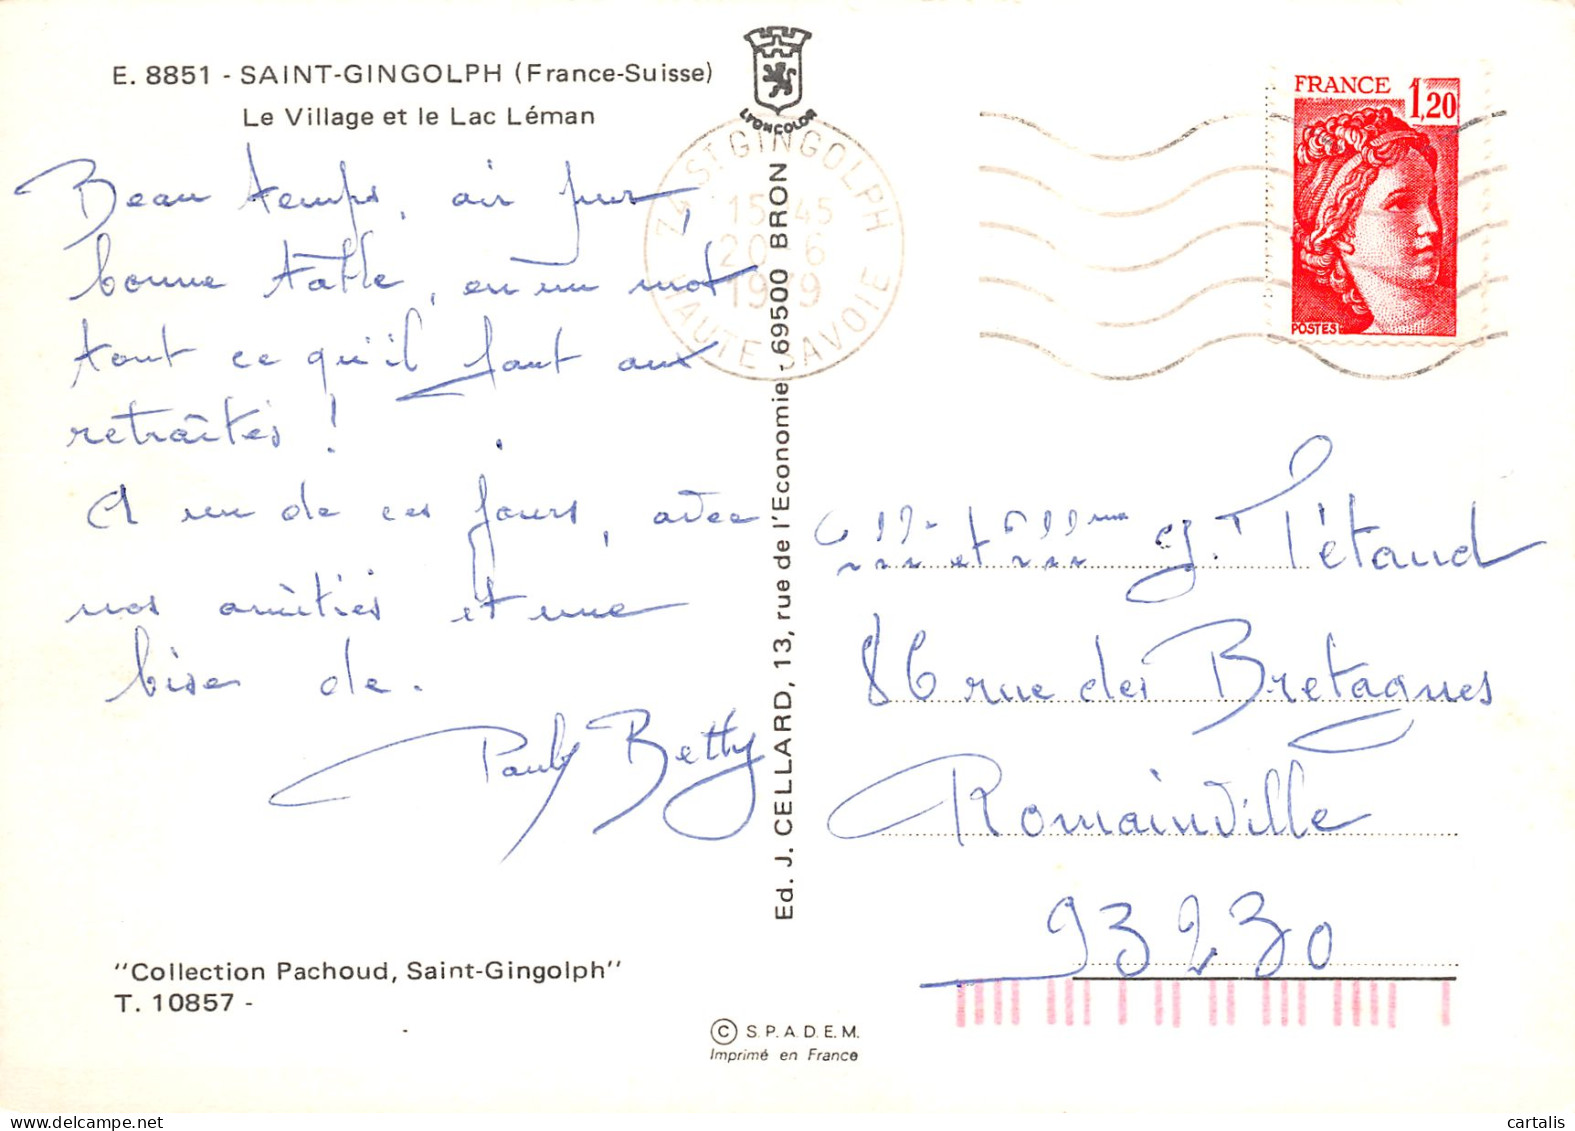 E. 8851 - SAINT-GINGOLPH (France-Suisse)
Le Village et le Lac Léman
LYONCOLOR
Beau temps, air pur,
bonne table, en un mot
tout ce qu'il faut aux
retraités !
A un de ces jours, avec
nos amitiés et une
bise de.
Betty
"Collection Pachoud, Saint-Gingolph"
T. 10857 -
Ed. J. CELLARD, 13, rue de l'Economie - 69500 BRON
© S.P.A.D.E.M.
Imprimé en France
74 ST GINGOLPH
15 45
20 6
1979
HAUTE SAVOIE
FRANCE 1,20
POSTES
et J. Pétaud
86 rue des Bretagnes
Romainville
93230
cartalis.com